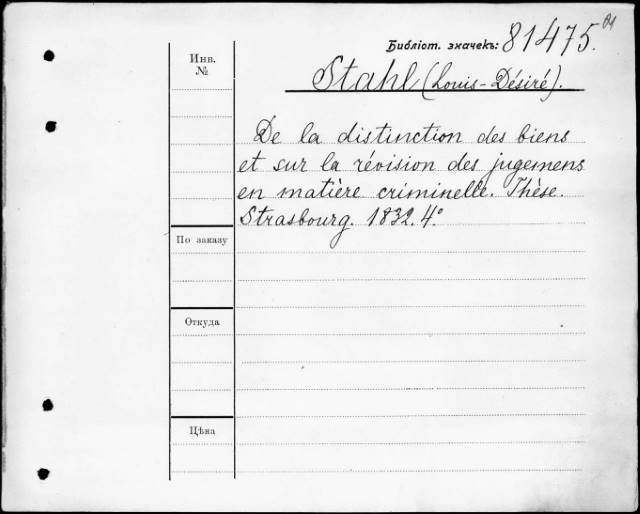 Библіот. значекъ: 81475.
Инв. №
Stahl (Louis-Désiré).
De la distinction des biens
et sur la révision des jugemens
en matière criminelle. Thèse.
Strasbourg. 1832. 4°
По заказу
Откуда
Цѣна